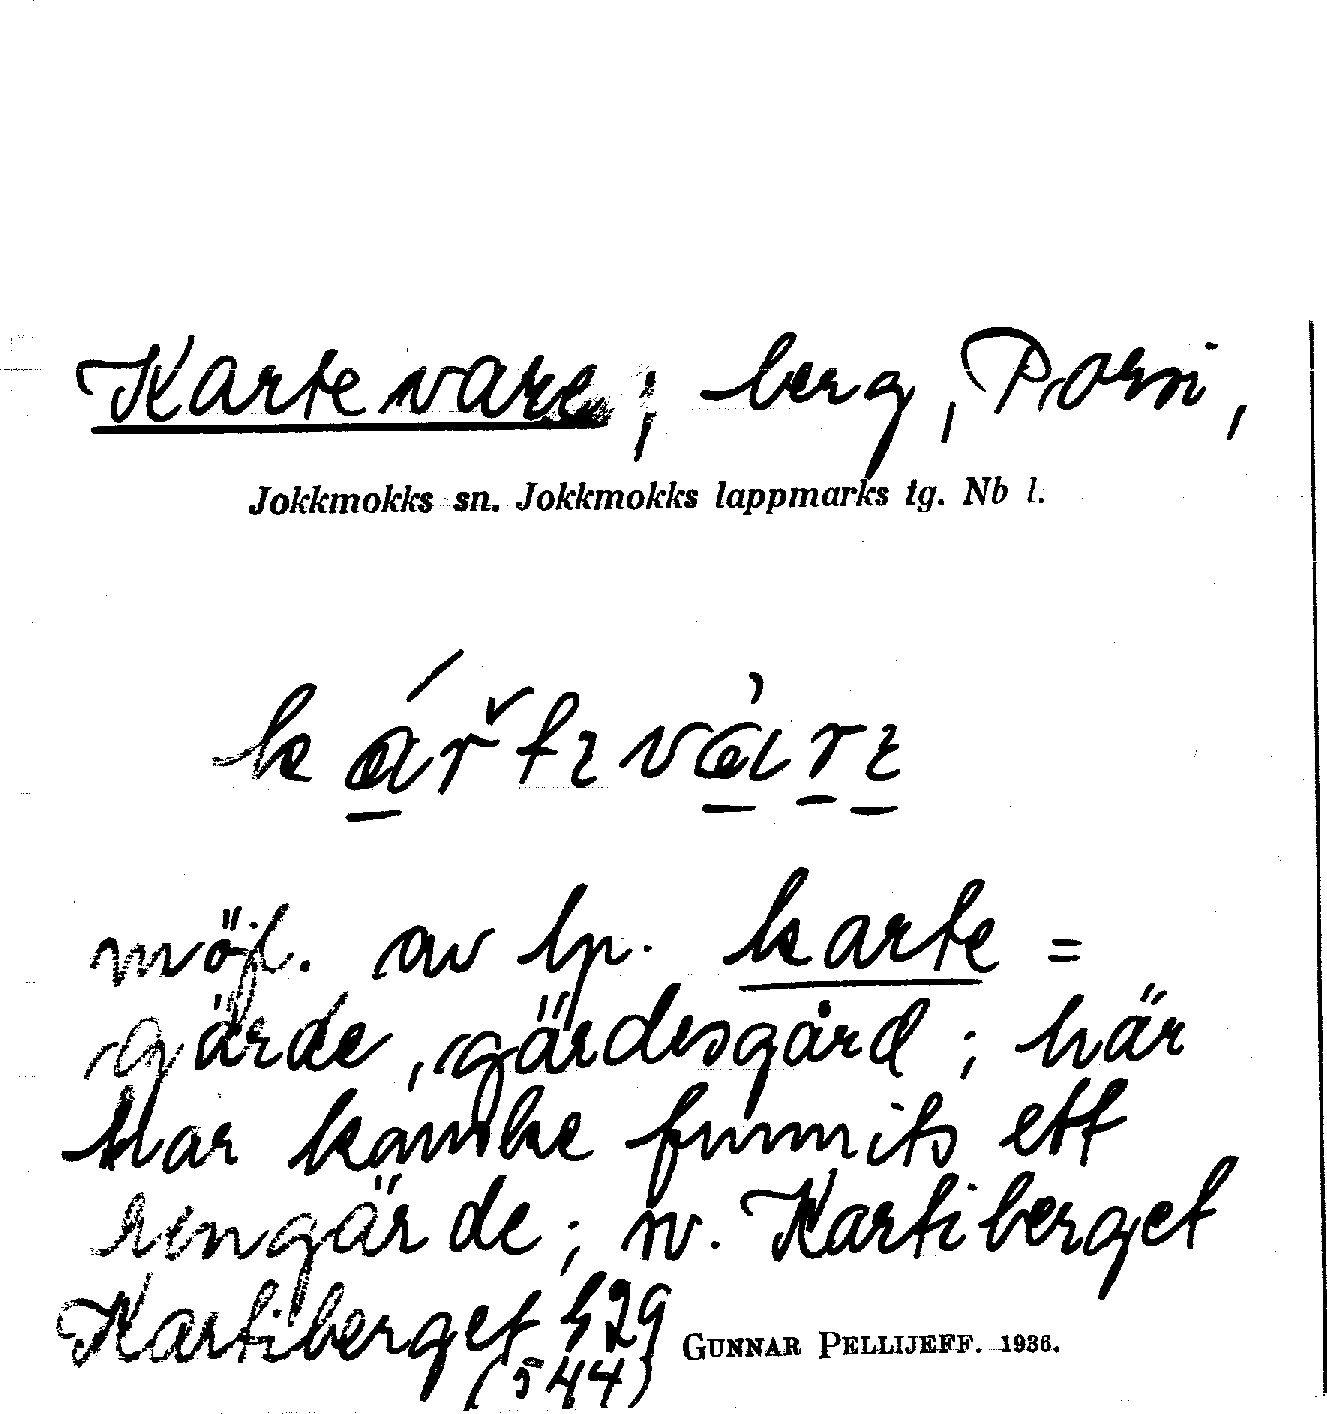 Kartevare; berg, Porsi,
Jokkmokks sn. Jokkmokks lappmarks tg. Nb l.
möjl. av lp. karte =
gärde, gärdesgård; här
har kanske funnits ett
rengärde; sv. Kartiberget
Kartiberget 529
(544)
GUNNAR PELLIJEFF. 1936.